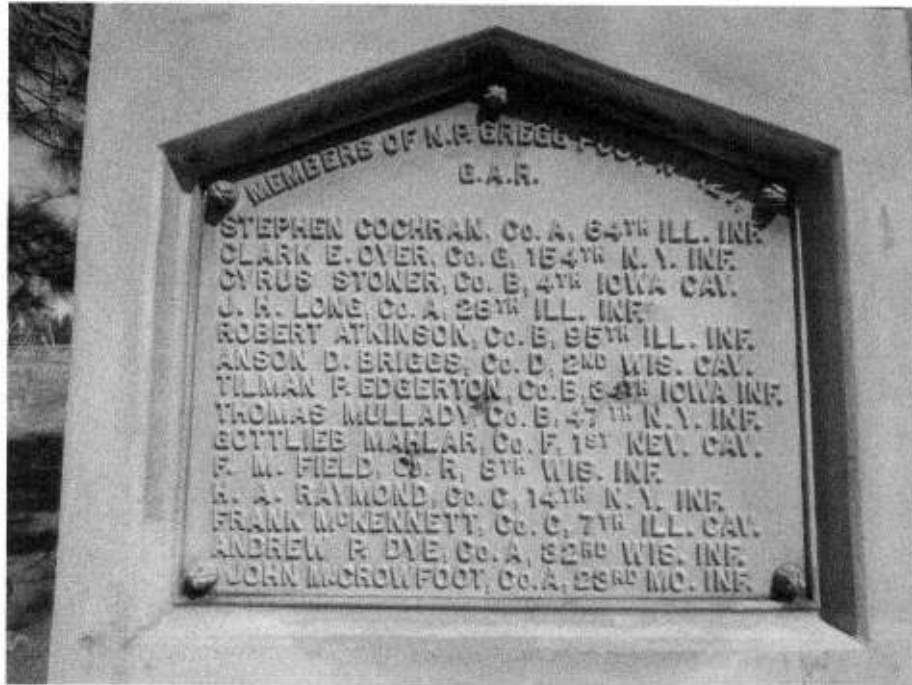 MEMBERS OF N.P. GREGG POST
G.A.R.
STEPHEN COCHRAN, Co. A, 64TH ILL. INF.
CLARK E. OYER, Co. G, 154TH N.Y. INF.
CYRUS STONER, Co. B, 4TH IOWA CAV.
J. H. LONG, Co. A, 28TH ILL. INF.
ROBERT ATKINSON, Co. B, 95TH ILL. INF.
ANSON D. BRIGGS, Co. D, 2ND WIS. CAV.
TILMAN P. EDGERTON, Co. B, 34TH IOWA INF.
THOMAS MULLADY, Co. B, 47TH N.Y. INF.
GOTTLIEB MAHLAR, Co. F, 1ST NEV. CAV.
F. M. FIELD, Co. R, 8TH WIS. INF.
H. A. RAYMOND, Co. C, 14TH N.Y. INF.
FRANK McKENNETT, Co. C, 7TH ILL. CAV.
ANDREW P. DYE, Co. A, 32RD WIS. INF.
JOHN M. CROWFOOT, Co. A, 23RD MO. INF.